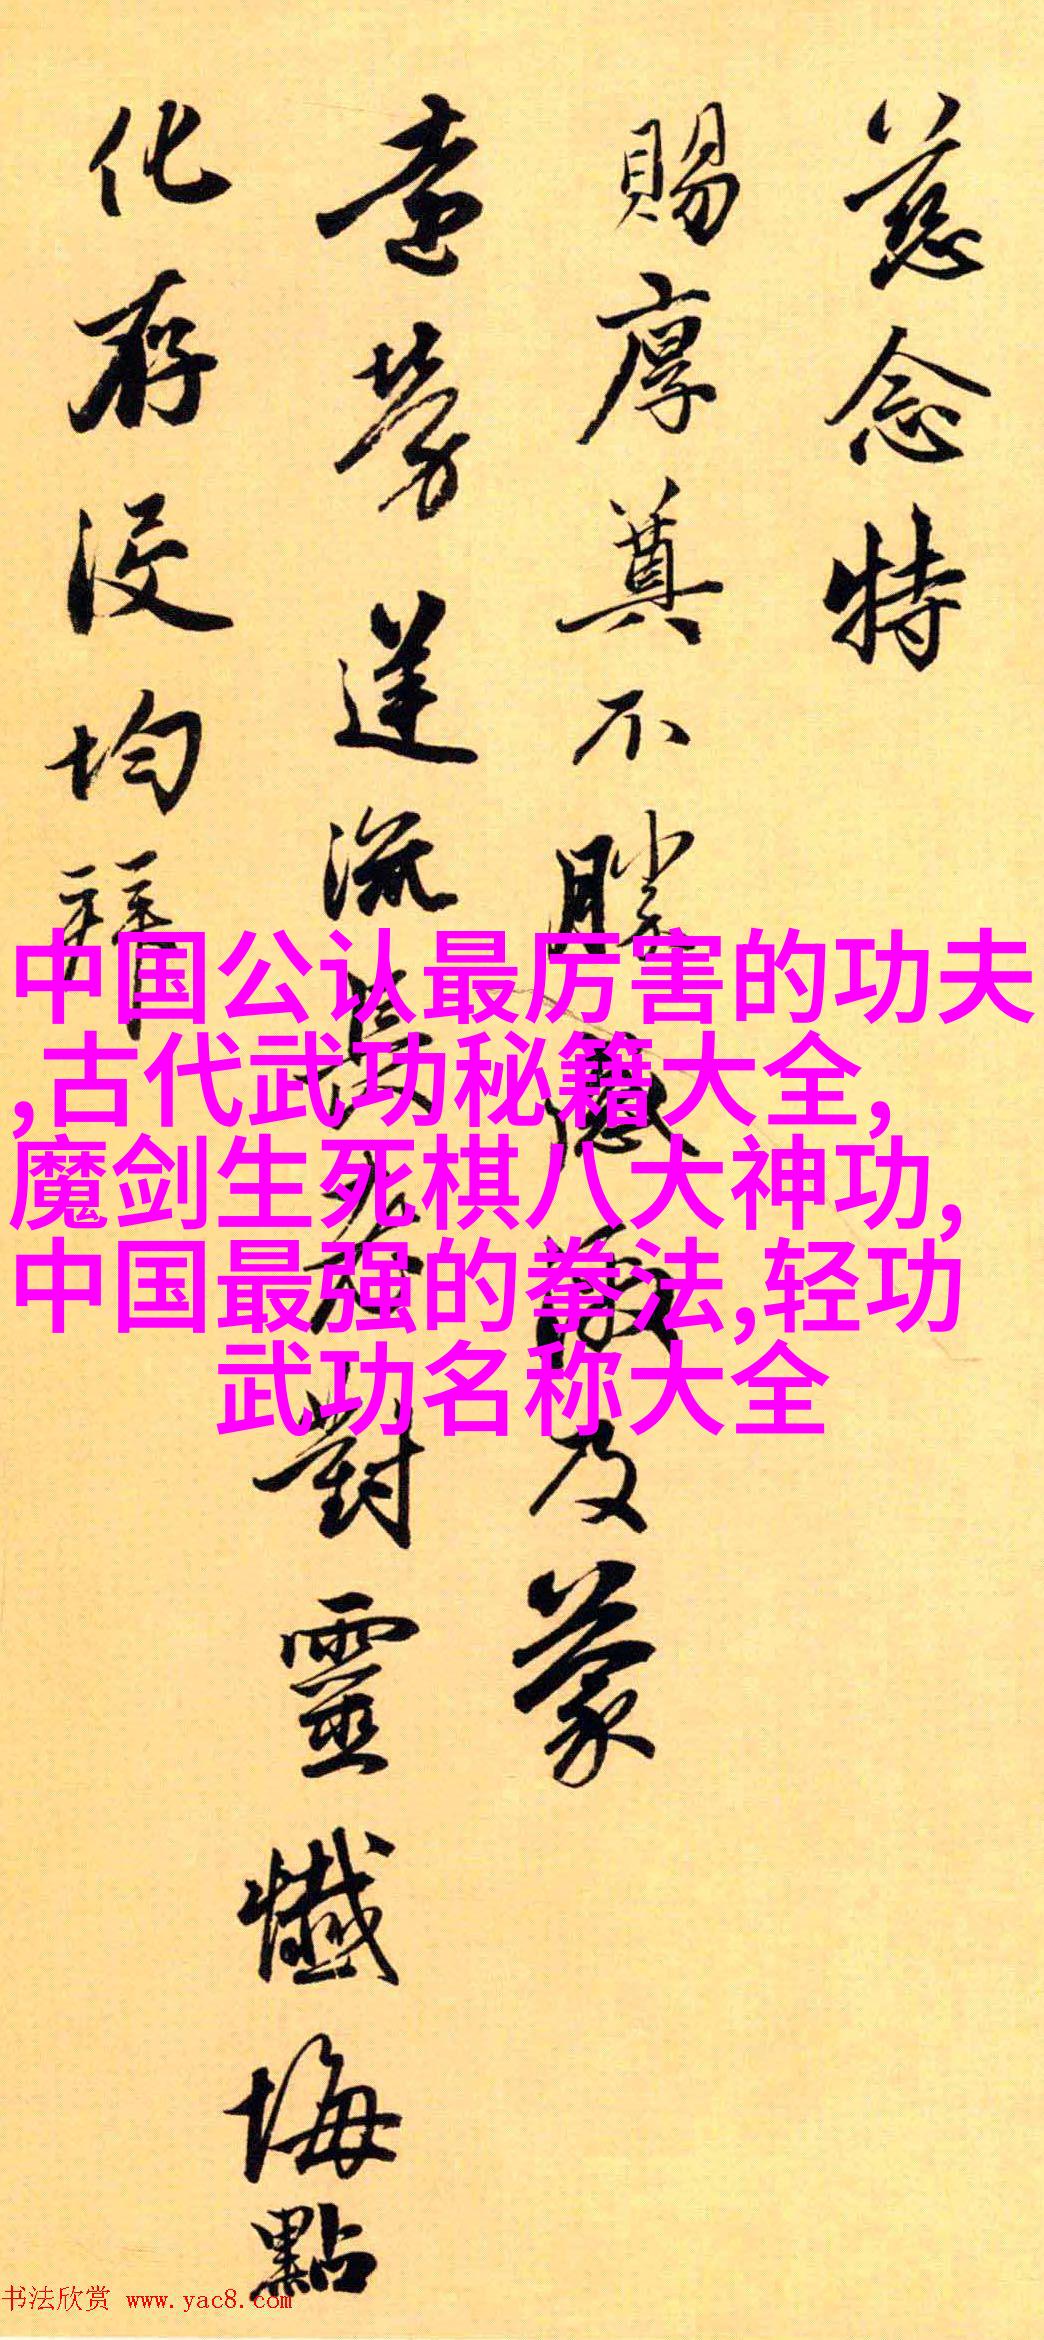 慈念特
賜厚奠不勝感激及蒙
遠勞送流長老對靈懺悔點
化存没均
中国公认最厉害的功夫
,古代武功秘籍大全,
魔剑生死棋八大神功,
中国最强的拳法,轻功
武功名称大全
书法欣赏 www.yac8.com